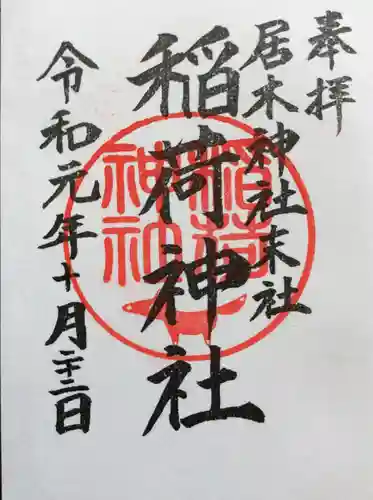 奉拝
居木神社末社
稲荷神社
令和元年十月二十二日
稲荷
神社